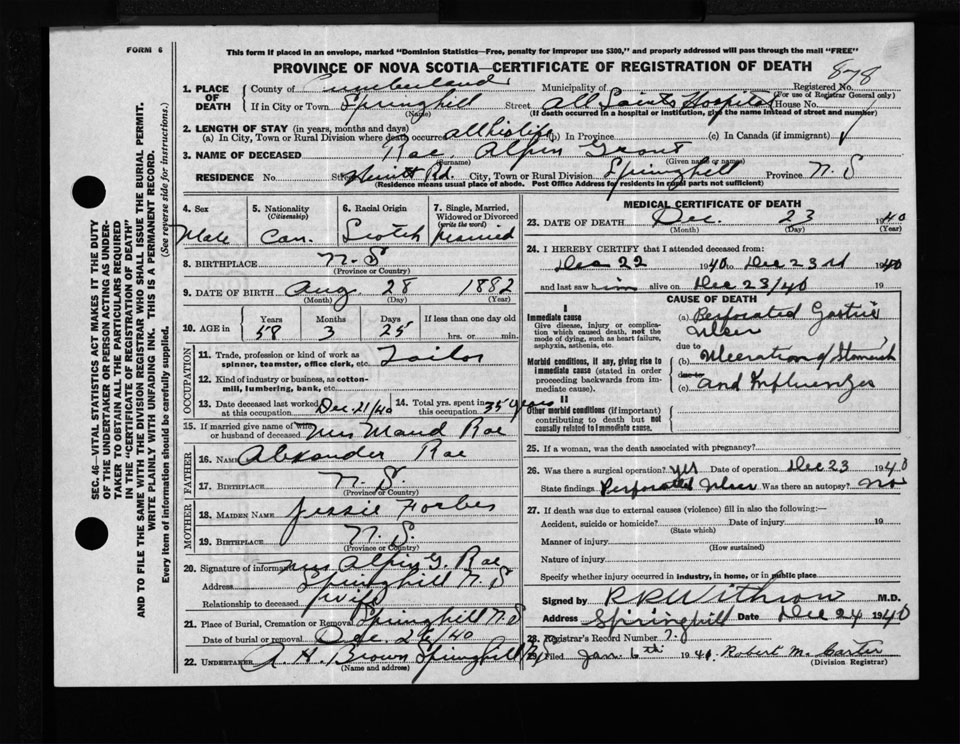 FORM 6
This form if placed in an envelope, marked "Dominion Statistics—Free, penalty for improper use $300," and properly addressed will pass through the mail "FREE"
PROVINCE OF NOVA SCOTIA—CERTIFICATE OF REGISTRATION OF DEATH
878
1. PLACE OF DEATH
County of Cumberland Municipality of Registered No.
(For use of Registrar General only)
If in City or Town Springhill Street All Saints Hospital House No.
(Name) (If death occurred in a hospital or institution, give the name instead of street and number)
2. LENGTH OF STAY (in years, months and days)
(a) In City, Town or Rural Division where death occurred all his life (b) In Province (c) In Canada (if immigrant)
3. NAME OF DECEASED Rae, Alpin Grant
(Surname) (Given name or names)
RESIDENCE No. St. Herritt Rd. City, Town or Rural Division Springhill Province N.S
(Residence means usual place of abode. Post Office Address for residents in rural parts not sufficient)
4. Sex Male
5. Nationality (Citizenship) Can.
6. Racial Origin Scotch
7. Single, Married, Widowed or Divorced (write the word) Married
8. BIRTHPLACE N.S
(Province or Country)
9. DATE OF BIRTH Aug. 28 1882
(Month) (Day) (Year)
10. AGE in Years 58 Months 3 Days 25 If less than one day old hrs. or min.
OCCUPATION
11. Trade, profession or kind of work as spinner, teamster, office clerk, etc. Tailor
12. Kind of industry or business, as cotton-mill, lumbering, bank, etc.
13. Date deceased last worked at this occupation Dec. 21/40
14. Total yrs. spent in this occupation 35 years
15. If married give name of wife or husband of deceased Mrs Maud Rae
FATHER
16. NAME Alexander Rae
17. BIRTHPLACE N.S.
(Province or Country)
MOTHER
18. MAIDEN NAME Jessie Forbes
19. BIRTHPLACE N.S.
(Province or Country)
20. Signature of informant Mrs Alpin G. Rae
Address Springhill N.S
Relationship to deceased Wife
21. Place of Burial, Cremation or Removal Springhill N.S
Date of burial or removal Dec. 26/40
22. UNDERTAKER A. H. Brown Springhill
(Name and address)
MEDICAL CERTIFICATE OF DEATH
23. DATE OF DEATH Dec. 23 1940
(Month) (Day) (Year)
24. I HEREBY CERTIFY that I attended deceased from:
Dec 22 1940 to Dec 23rd 1940
and last saw him alive on Dec 23/40 19
CAUSE OF DEATH
I
Immediate cause
Give disease, injury or complication which caused death, not the mode of dying, such as heart failure, asphyxia, asthenia, etc.
(a) Perforated Gastric Ulcer
due to
Morbid conditions, if any, giving rise to immediate cause (stated in order proceeding backwards from immediate cause).
(b) Ulceration of Stomach
due to
(c) and Influenza
II
Other morbid conditions (if important) contributing to death but not causally related to immediate cause.
25. If a woman, was the death associated with pregnancy?
26. Was there a surgical operation? Yes Date of operation Dec 23 1940
State findings Perforated Ulcer Was there an autopsy? No
27. If death was due to external causes (violence) fill in also the following:—
Accident, suicide or homicide? Date of injury 19
(State which)
Manner of injury
(How sustained)
Nature of injury
Specify whether injury occurred in industry, in home, or in public place
Signed by R R Withrow M.D.
Address Springhill Date Dec 24 1940
28. Registrar's Record Number
29. Filed Jan. 6th 1941 Robert M. Carter
(Division Registrar)
SEC. 46—VITAL STATISTICS ACT MAKES IT THE DUTY
OF THE UNDERTAKER OR PERSON ACTING AS UNDER-
TAKER TO OBTAIN ALL THE PARTICULARS REQUIRED
IN THE "CERTIFICATE OF REGISTRATION OF DEATH"
AND TO FILE THE SAME WITH THE DIVISION REGISTRAR WHO SHALL ISSUE THE BURIAL PERMIT.
WRITE PLAINLY WITH UNFADING INK. THIS IS A PERMANENT RECORD.
Every item of information should be carefully supplied. (See reverse side for instructions.)